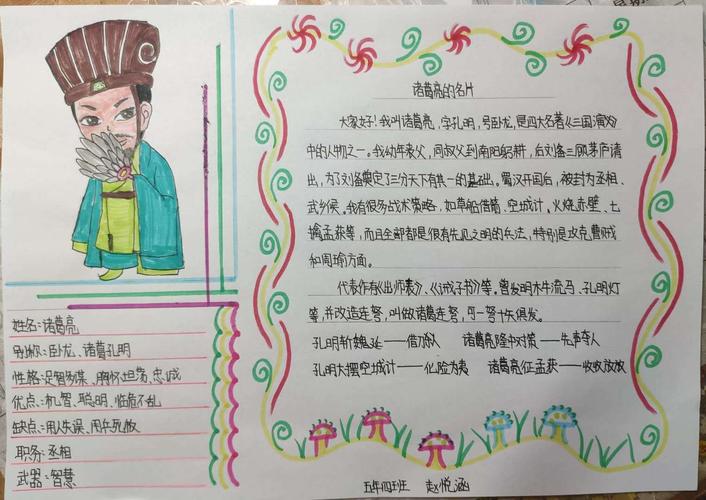 姓名:诸葛亮
别称:卧龙、诸葛孔明
性格:足智多谋、胸怀坦荡、忠诚
优点:机智、聪明、临危不乱
缺点:用人失误、用兵死板
职务:丞相
武器:智慧
诸葛亮的名片
大家好!我叫诸葛亮,字孔明,号卧龙,是四大名著《三国演义》
中的人物之一。我幼年丧父,同叔父到南阳躬耕,后刘备三顾茅庐请
出,为了刘备奠定了三分天下有其一的基础。蜀汉开国后,被封为丞相、
武乡侯。我有很多战术策略,如草船借箭、空城计、火烧赤壁、七
擒孟获等,而且全部都是很有先见之明的兵法,特别是攻克曹贼
和周瑜方面。
代表作有《出师表》、《诫子书》等。曾发明木牛流马、孔明灯
等,并改造连弩,叫做诸葛连弩,可一弩十矢俱发。
孔明斩魏延——借刀杀人 诸葛亮隆中对策——先声夺人
孔明大摆空城计——化险为夷 诸葛亮征孟获——收收放放
五年四班 赵悦涵